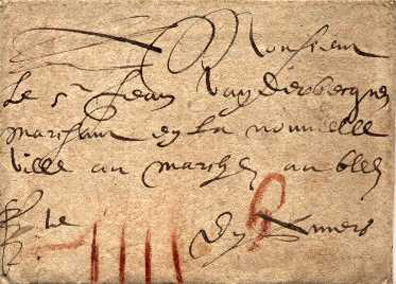 Monsieur
Le Sr Jean Vanderbecquen
marchant en la nouvelle
ville au marché au bled
En Anvers